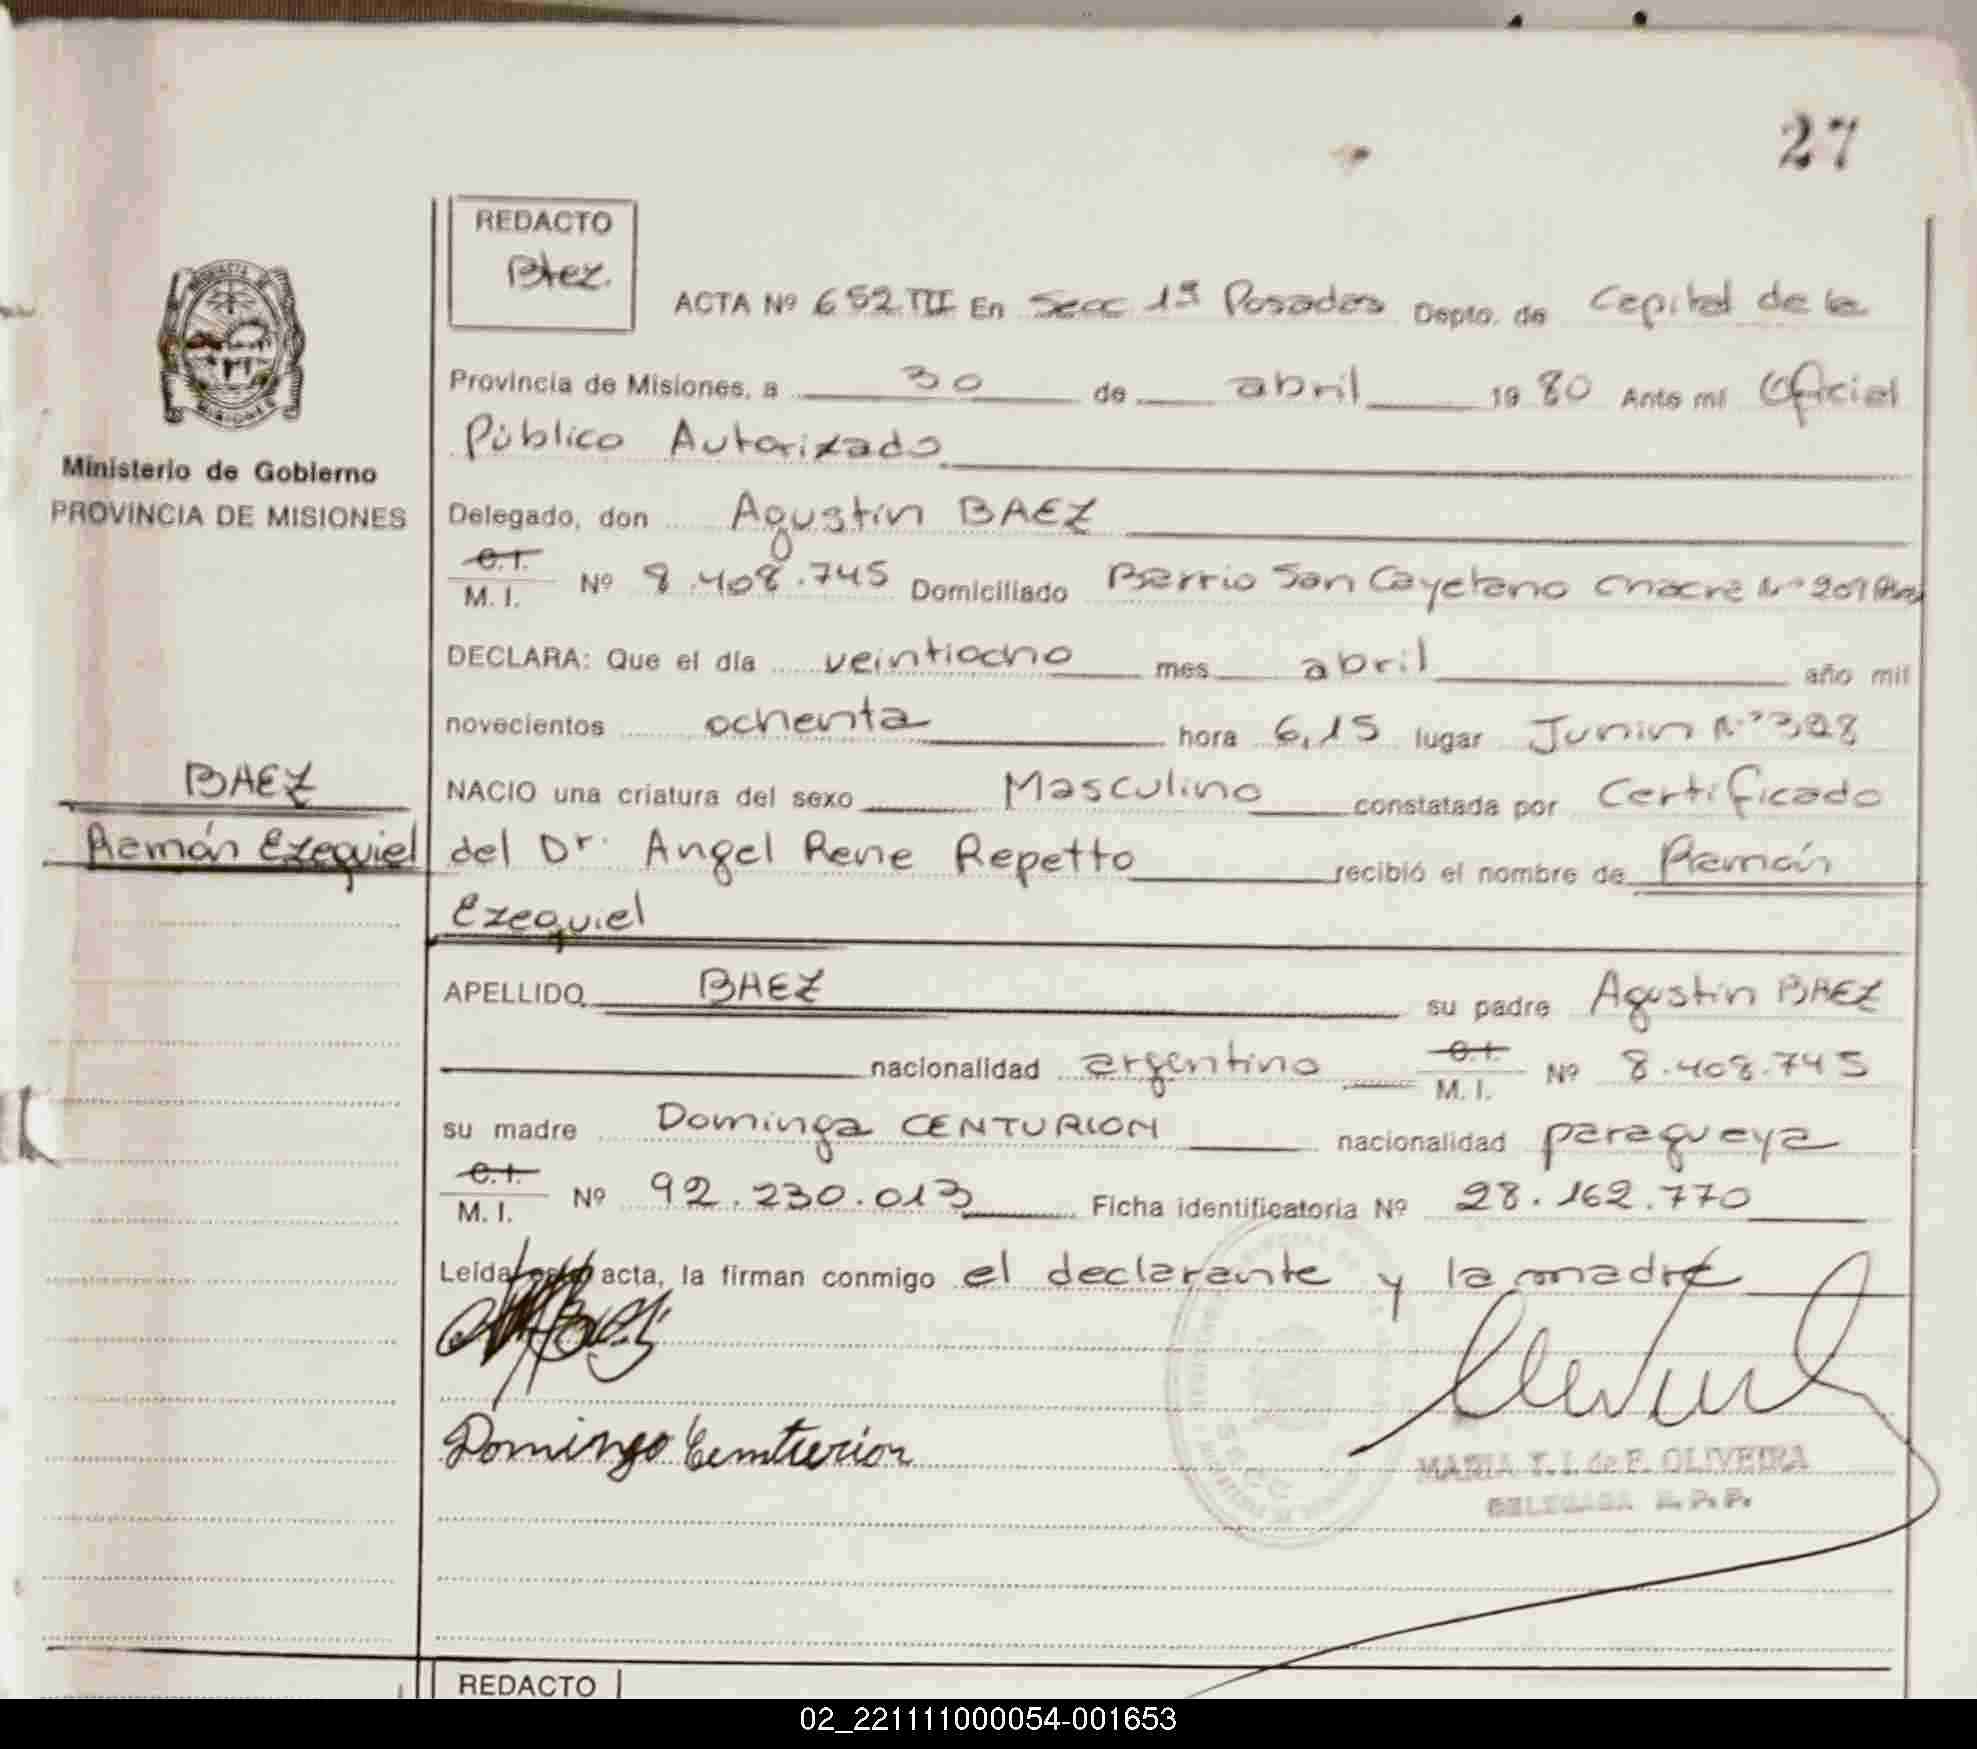 27
REDACTO
Baez.
ACTA Nº 652.TIII En Secc 1ª Posadas Depto. de Capital de la
Provincia de Misiones, a 30 de abril 1980 Ante mí Oficial
Público Autorizado
Ministerio de Gobierno
PROVINCIA DE MISIONES
Delegado, don Agustín BAEZ
C.I.
M. I. Nº 8.408.745 Domiciliado Barrio San Cayetano Chacra Nº 201
DECLARA: Que el día veintiocho mes abril año mil
novecientos ochenta hora 6,15 lugar Junin Nº 328
BAEZ
NACIO una criatura del sexo Masculino constatada por Certificado
Ramón Ezequiel
del Dr. Angel Rene Repetto recibió el nombre de Ramón
Ezequiel
APELLIDO BAEZ su padre Agustín BAEZ
nacionalidad argentino C.I. M. I. Nº 8.408.745
su madre Dominga CENTURION nacionalidad paraguaya
C.I.
M. I. Nº 92.230.013 Ficha identificatoria Nº 28.162.770
Leída esta acta, la firman conmigo el declarante y la madre
Domingo Centurion
MARIA T. I. de F. OLIVEIRA
DELEGADA R. P. P.
REDACTO
02_221111000054-001653